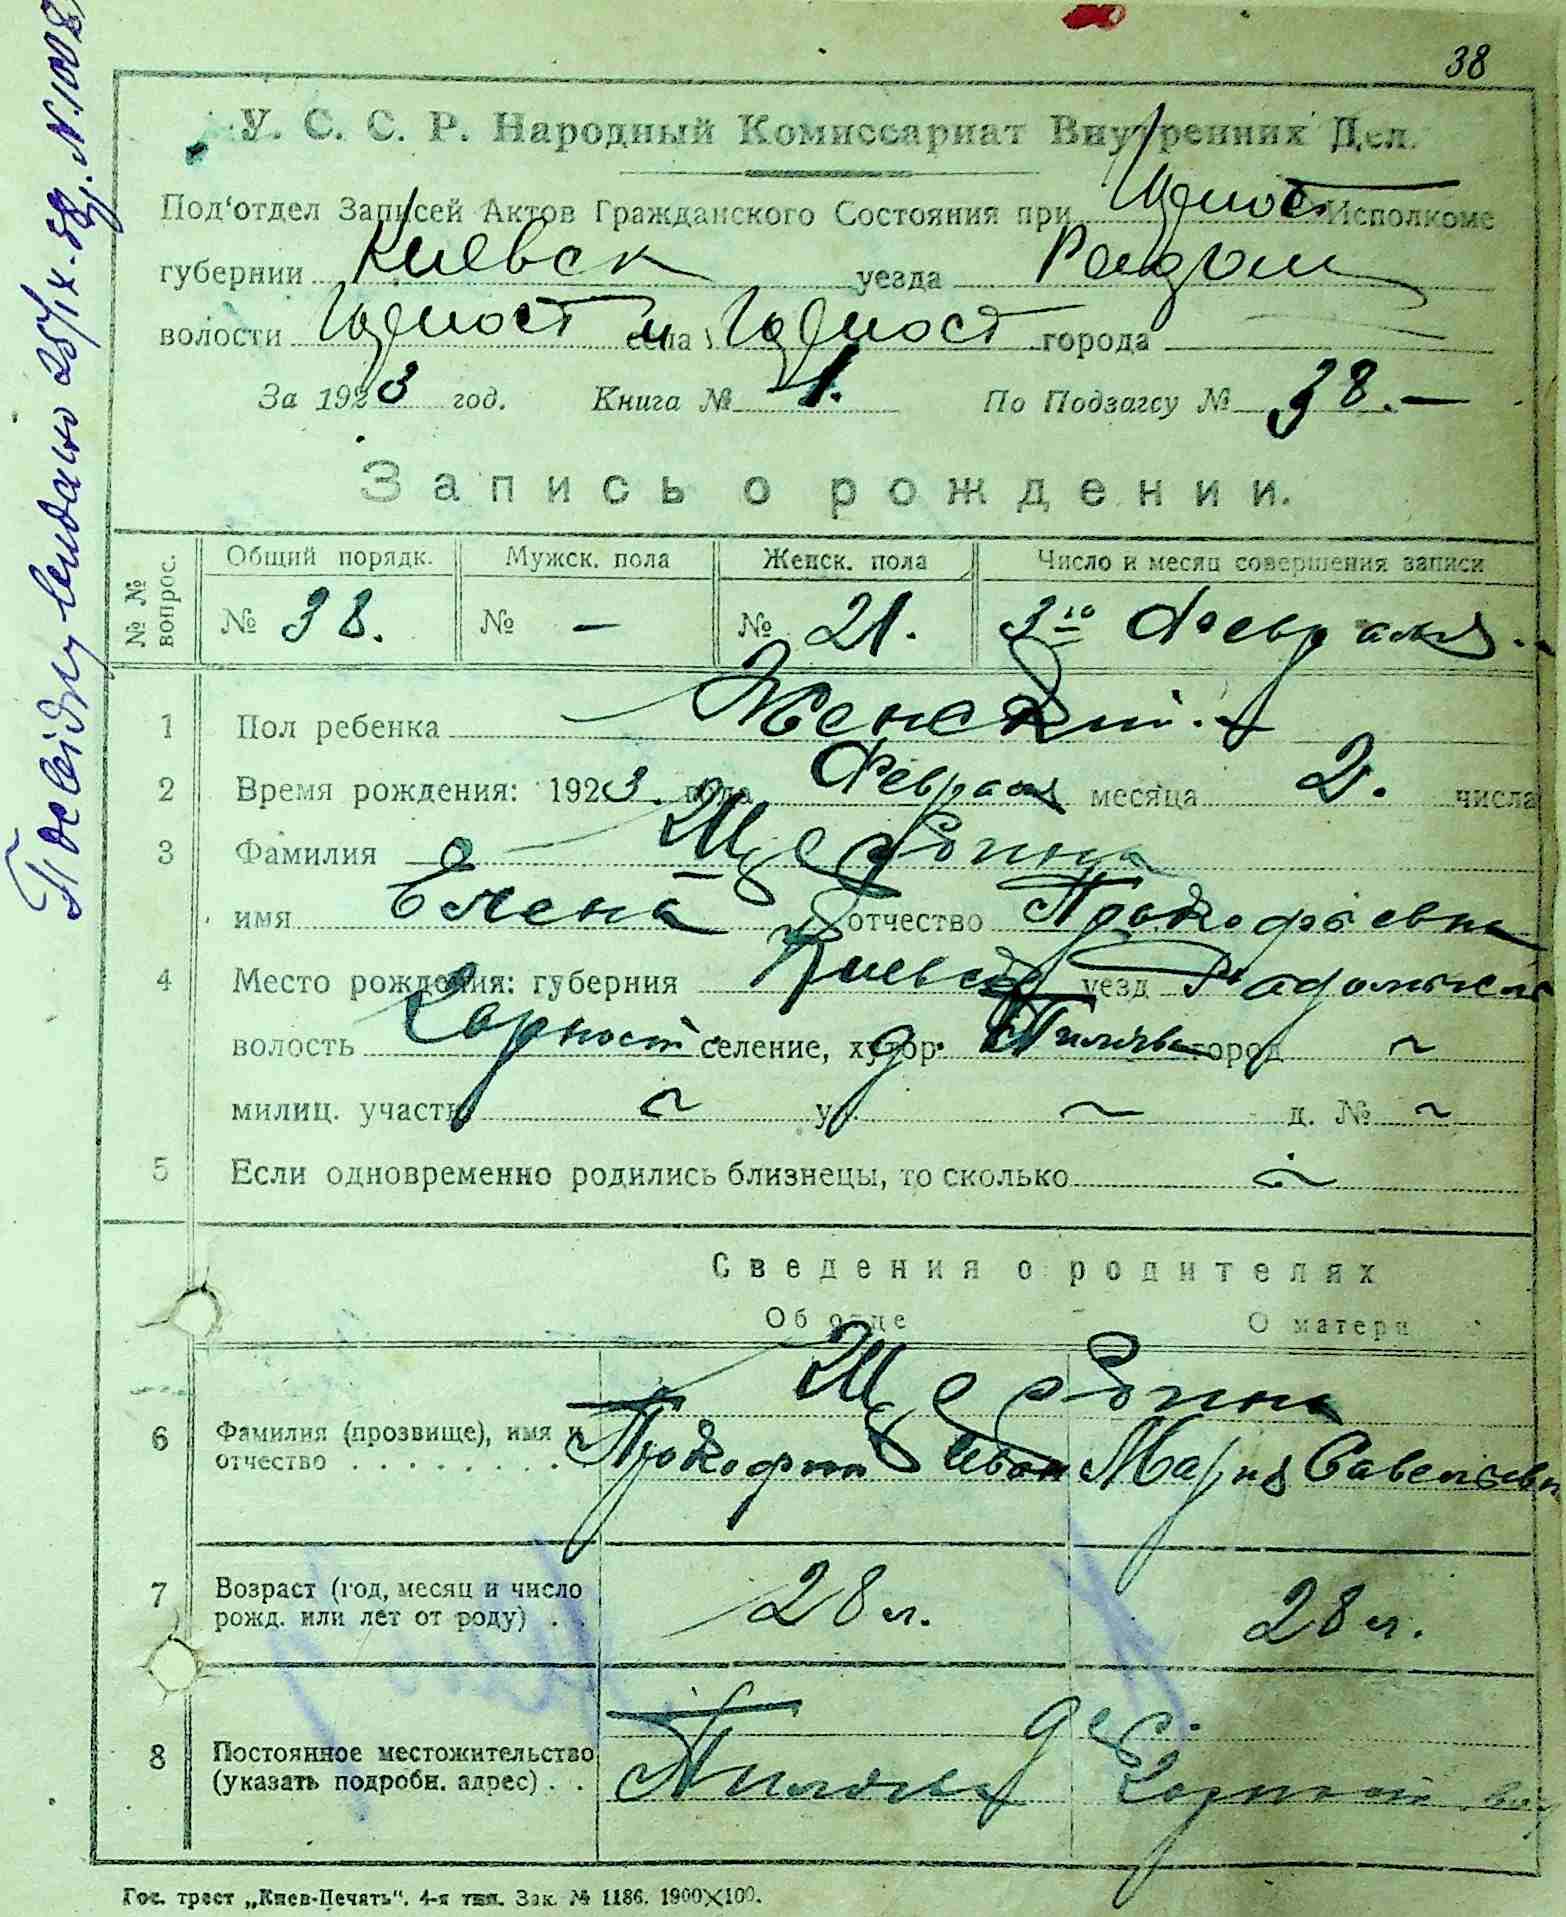 38
Посвідку видано 25/IX-58р. N 1008
У. С. С. Р. Народный Комиссариат Внутренних Дел.
Под'отдел Записей Актов Гражданского Состояния при Исполкоме
губернии Киевск уезда Радом
волости села города
За 1923 год. Книга № 1. По Подзагсу № 38.—
Запись о рождении.
№ № вопрос. Общий порядк. Мужск. пола Женск. пола Число и месяц совершения записи
№ 38. № — № 21. 3го Февраля.
1 Пол ребенка Женский.
2 Время рождения: 1923. года Февраля месяца 2. числа
3 Фамилия Щербина
имя Елена отчество Прокофьевна
4 Место рождения: губерния Киевск уезд Радомысл
волость Горност селение, хутор д. город ~
милиц. участк ~ у ~ д. № ~
5 Если одновременно родились близнецы, то сколько ~
Сведения о родителях
Об отце О матери
Щербина
6 Фамилия (прозвище), имя и отчество . . . . . . . . Прокофий Иван Мария Савельевн
7 Возраст (год, месяц и число рожд. или лет от роду) . . 28 л. 28 л.
8 Постоянное местожительство (указать подробн. адрес) . . .
Гос. трест „Киев-Печать". 4-я тип. Зак. № 1186. 1900×100.